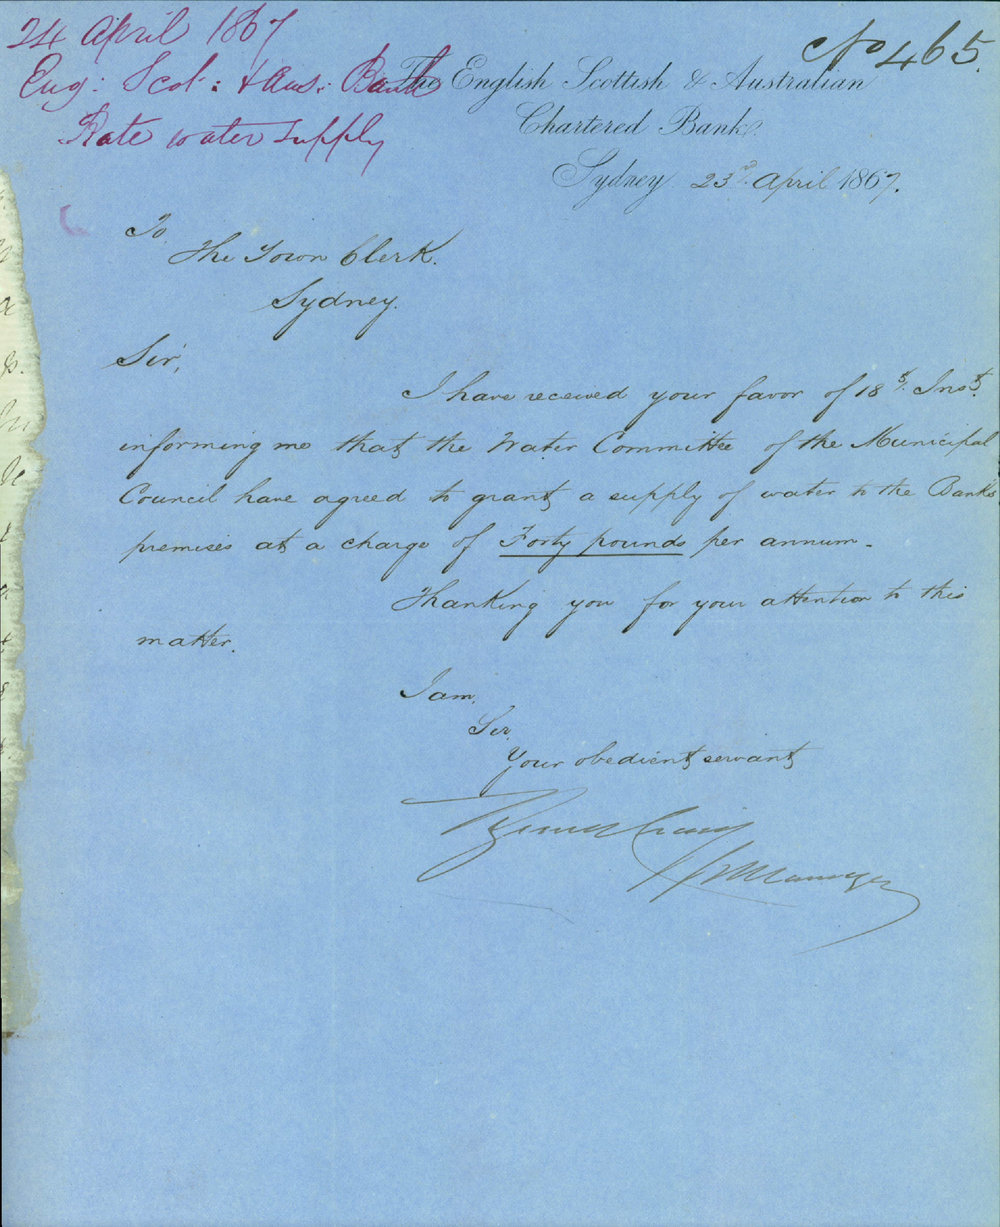 24 April 1867
Eng: Scot: & Aus: Bank
Rate water supply
No 465.
The English Scottish & Australian
Chartered Bank.
Sydney 23d. April 1867.
To
The Town Clerk.
Sydney.
Sir,
I have received your favor of 18th. Inst.
informing me that the Water Committee of the Municipal
Council have agreed to grant a supply of water to the Banks
premises at a charge of Forty pounds per annum.
Thanking you for your attention to this
matter.
I am,
Sir,
Your obedient servant
Manager